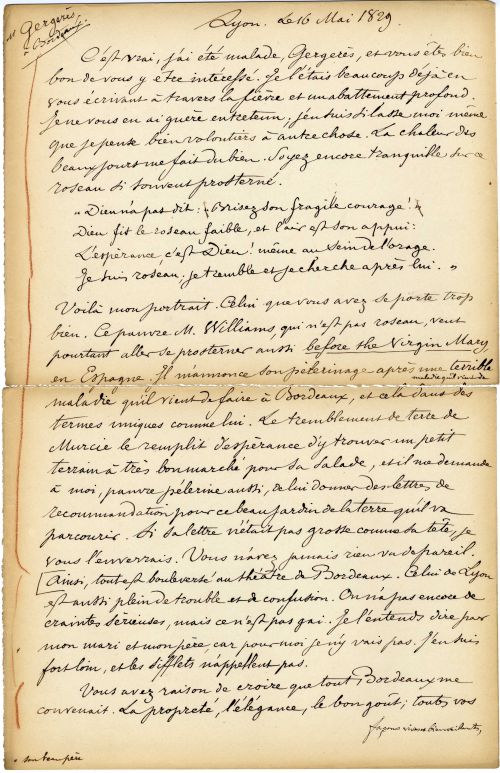 M Gergerès
à Bordeaux.
Lyon. Le 16 Mai 1829.
C'est vrai, j'ai été malade, Gergerès, et vous êtes bien
bon de vous y être intéressé. Je l'étais beaucoup déjà en
vous écrivant à travers la fièvre et un abattement profond.
Je ne vous en ai guère entretenu. j'en suis si lasse moi même
que je pense bien volontiers à autre chose. La chaleur des
beaux jours me fait du bien. Soyez encore tranquille sur ce
roseau si souvent prosterné.
" Dieu n'a pas dit : Brisez son fragile courage !
Dieu fit le roseau faible, et l'air est son appui :
L'espérance, c'est Dieu ! même au sein de l'orage.
Je suis roseau. je tremble et je cherche après lui. "
Voilà mon portrait. Celui que vous avez se porte trop
bien. Ce pauvre M. Williams, qui n'est pas roseau, veut
pourtant aller se prosterner aussi before the Virgin Mary,
en Espagne. Il m'annonce son pèlerinage après une terrible
maladie qu'il vient de
maladie qu'il vient de faire à Bordeaux, et cela dans des
termes uniques comme lui. Le tremblement de terre de
Murcie le remplit d'espérance d'y trouver un petit
terrain à très bon marché pour sa salade, et il me demande
à moi, pauvre pèlerine aussi, de lui donner des lettres de
recommandation pour ce beau jardin de la terre qu'il va
parcourir. Si sa lettre n'était pas grosse comme sa tête, je
vous l'enverrais. Vous n'avez jamais rien vu de pareil.
Ainsi, tout est bouleversé au théâtre de Bordeaux. Celui de Lyon
est aussi plein de trouble et de confusion. On n'a pas encore de
craintes sérieuses, mais ce n'est pas gai. Je l'entends dire par
mon mari et mon père, car pour moi je n'y vais pas. J'en suis
fort loin, et les sifflets n'appellent pas.
Vous avez raison de croire que tout Bordeaux me
convenait. La propreté, l'élégance, le bon goût ; toutes vos
façons
père